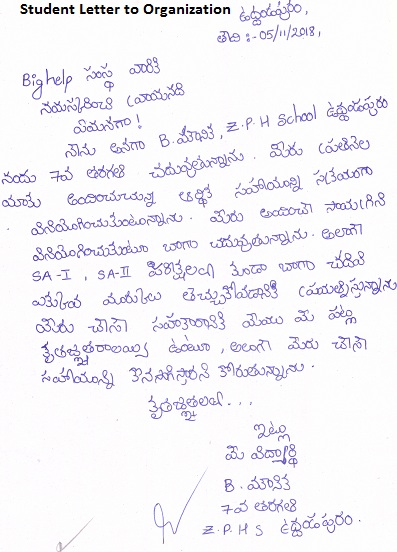 Student Letter to Organization
ఉద్దండపురం,
తేది :- 05/11/2018,
Big help సంస్థ వారికి
నమస్కరించి వ్రాయునది
ఏమనగా !
నేను అనగా B. మౌనిక, Z.P.H School ఉద్దండపురం
నందు 7వ తరగతి చదువుతున్నాను. మీరు ప్రతినెల
మాకు అందించుచున్న ఆర్థిక సహాయాన్ని సక్రమంగా
వినియోగించుకుంటున్నాను. మీరు అందించే సాయాన్ని
వినియోగించుకుంటూ బాగా చదువుతున్నాను. అలాగే
SA-I, SA-II పరీక్షలలో కూడా బాగా చదివి
ఎక్కువ మార్కులు తెచ్చుకోవడానికి ప్రయత్నిస్తున్నాను
మీరు చేసే సహకారానికి మేము మీ పట్ల
కృతజ్ఞతరాలమై ఉంటూ, అలాగే మీరు చేసే
సహాయాన్ని కొనసాగిస్తారని కోరుతున్నాను.
కృతజ్ఞతలతో...
ఇట్లు
మీ విద్యార్థి
B. మౌనిక
7వ తరగతి
Z.P.H S ఉద్దండపురం.